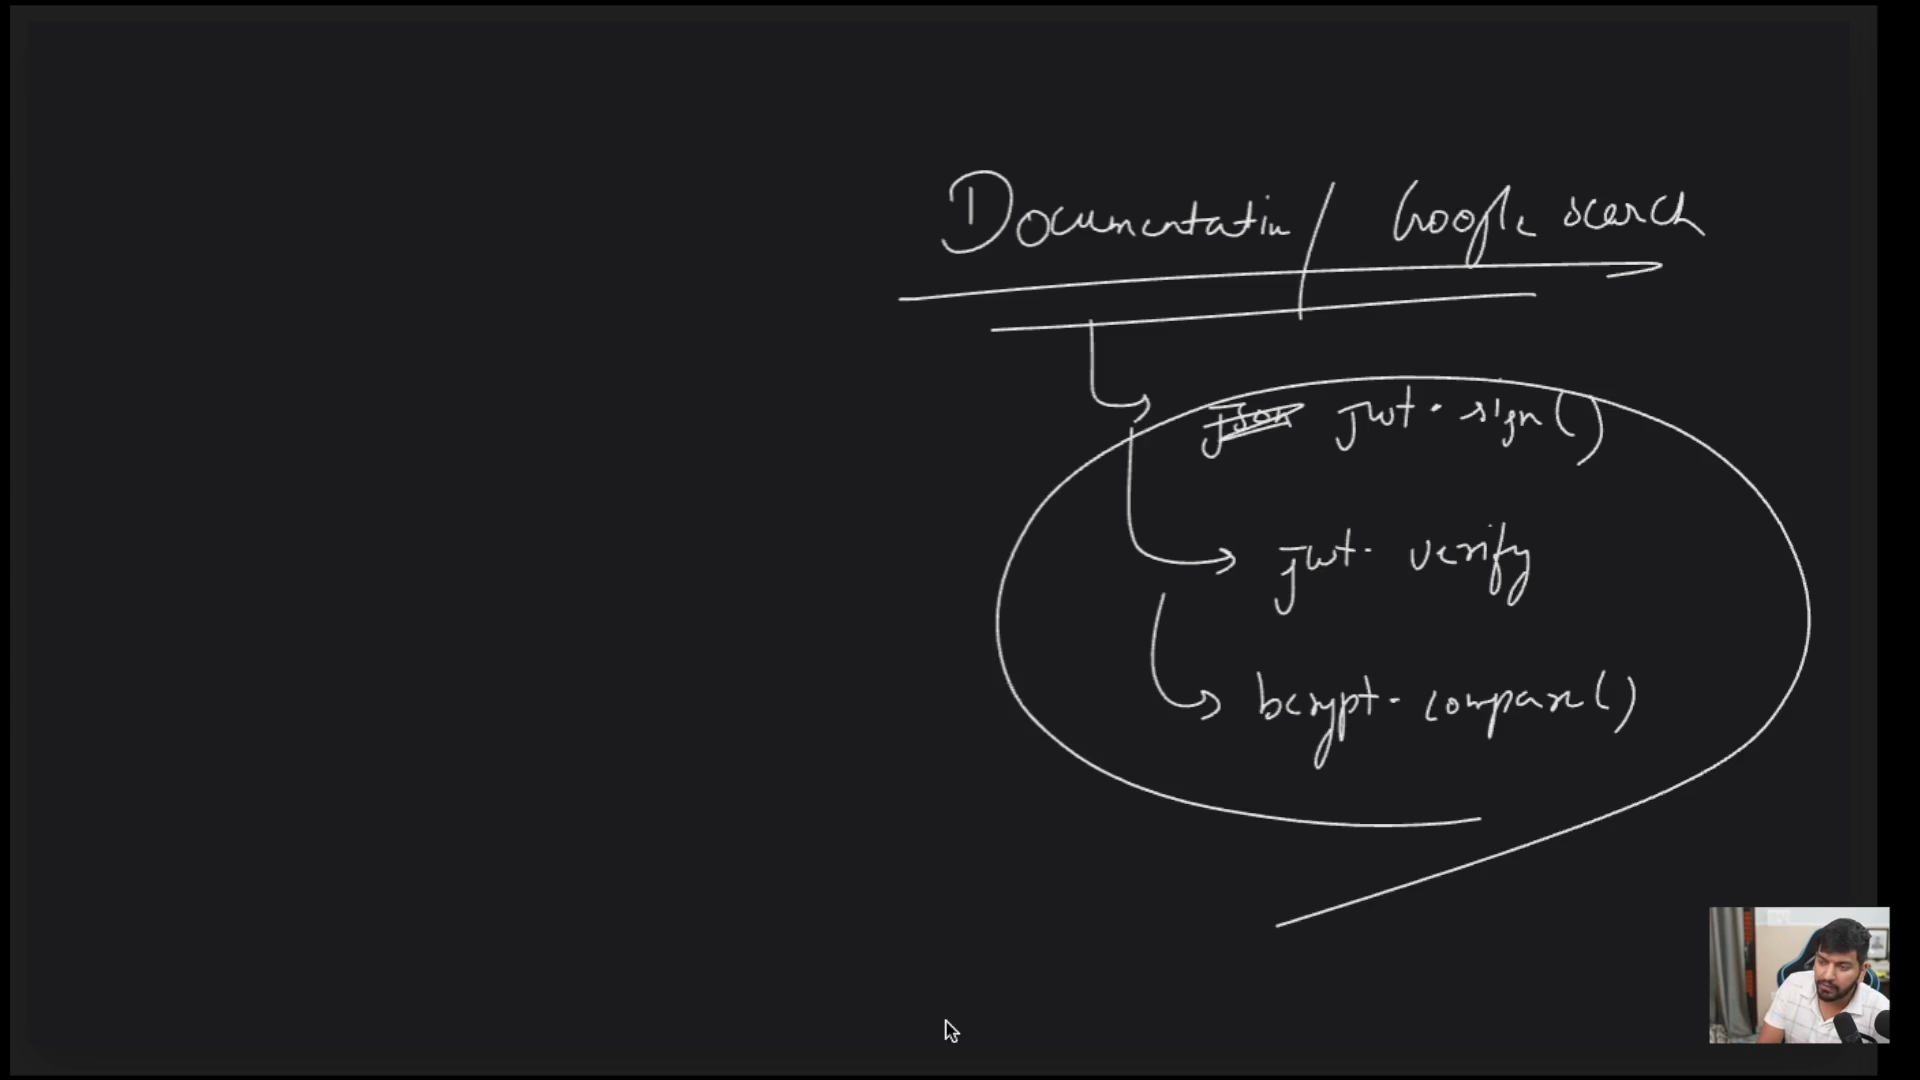 Documentatin / Google search
json jwt. sign()
jwt. verify
bcrypt. compare()